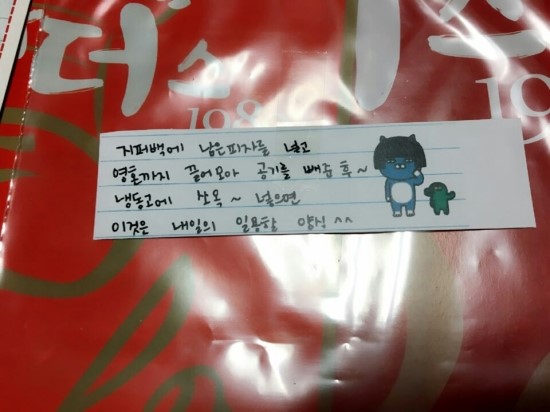 더 소
198
19
지퍼백에 남은피자를 넣고
영혼까지 끌어모아 공기를 빼줌 후~
냉동고에 쏘옥~ 넣으면
이것은 내일의 일용할 양식^^